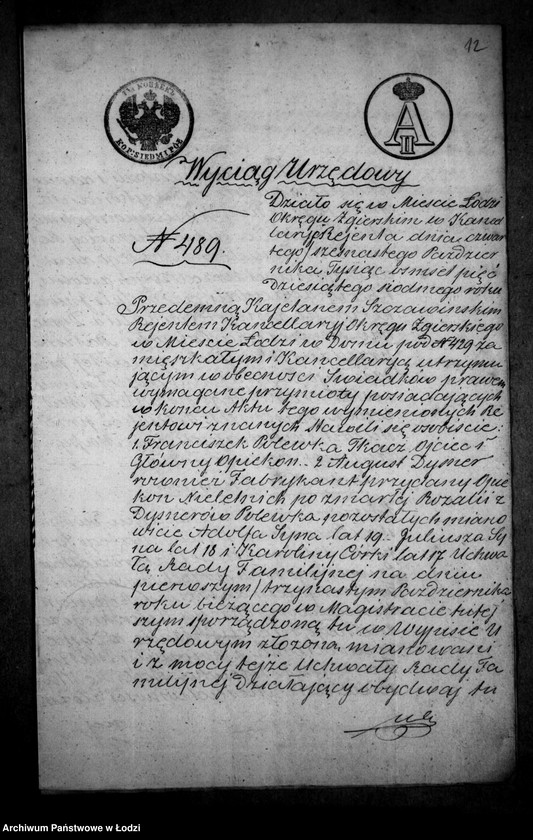 12
KOP. SIEDM I PÓŁ
A II
Wyciąg Urzędowy
N 489.
Działo się w Mieście Łodzi
Okręgu Zgierskim w Kancel
laryi Rejenta dnia czwar
tego / szesnastego Paździer
nika, Tysiąc ośmset pięć
dziesiątego siódmego roku
Przedemną Kajetanem Szczawińskim
Rejentem Kancellaryi Okręgu Zgierskiego
w Mieście Łodzi w Domu pod N 429 za
mięszkałym i Kancellaryą utrzymu
jącym w obecności Świadków prawem
wymagane przymioty posiadających
w końcu Aktu tego wymienionych Re
jentowi znanych Stawili się osobiście:
1. Franciszek Polewka Tkacz, Ojciec i
Główny Opiekon.. 2 August Dysner
rownież Fabrykant przydany Opie
kon Nieletnich po zmarłej Rozalii z
Dysnerów Polewka pozostałych miano
wicie Adolfa Syna lat 19.. Juliusza Sy
na lat 18 i Karoliny Córki lat 17 Uchwa
łą Rady Familijnej na dniu
pierwszym / trzynastym Października
roku bieżącego w Magistracie tutej
szym sporządzoną tu w Wypisie U
rzędowym złożoną, mianowani
i z mocy tejże Uchwały Rady Fa
milijnej Działający obydwaj tu